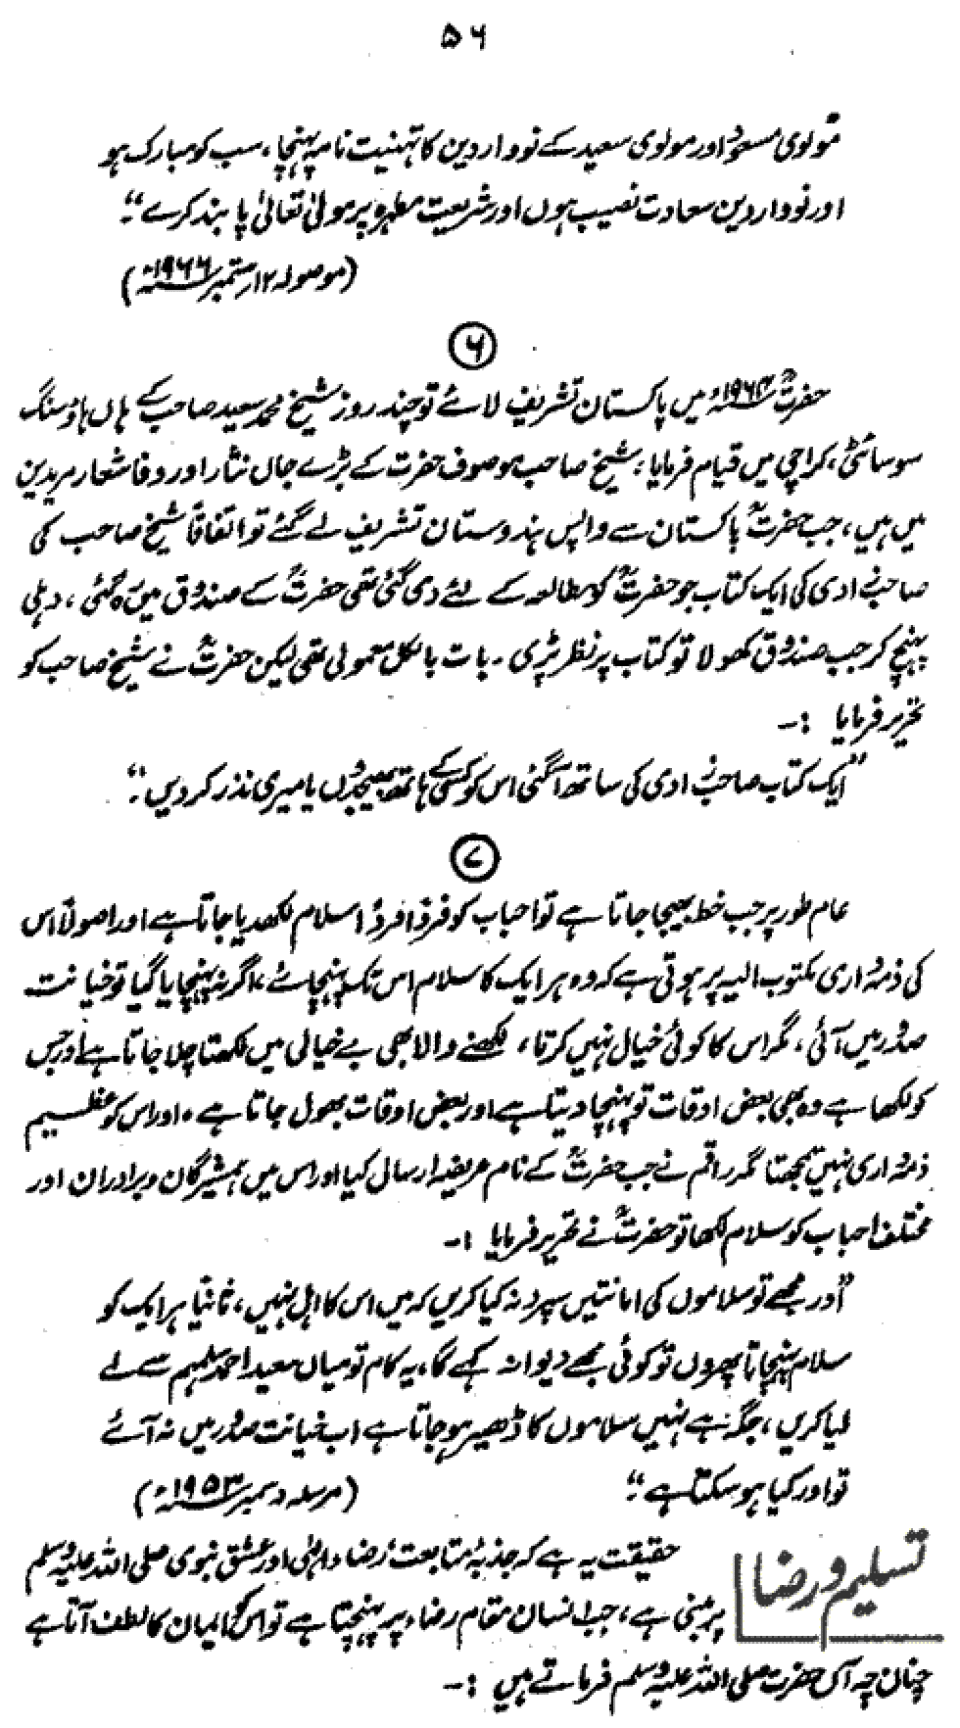 ۵۶
مولوی مسعود اور مولوی سعید کے نوواردین کا تہنیت نامہ پہنچا، سب کو مبارک ہو
اور نوواردین سعادت نصیب ہوں اور شریعت مطہرہ پر مولیٰ تعالیٰ پابند کرے"۔
(موصولہ ۱۲ ستمبر ۱۹۶۶ء)
۶
حضرتؒ ۱۹۶۳ء میں پاکستان تشریف لائے تو چند روز شیخ محمد سعید صاحب کے ہاں ہاؤسنگ
سوسائٹی، کراچی میں قیام فرمایا، شیخ صاحب موصوف حضرت کے بڑے جاں نثار اور وفا شعار مریدین
میں ہیں، جب حضرتؒ پاکستان سے واپس ہندوستان تشریف لے گئے تو اتفاقاً شیخ صاحب کی
صاحبزادی کی ایک کتاب جو حضرتؒ کو مطالعہ کے لئے دی گئی تھی حضرتؒ کے صندوق میں رہ گئی، دہلی
پہنچ کر جب صندوق کھولا تو کتاب پر نظر پڑی۔ بات بالکل معمولی تھی لیکن حضرتؒ نے شیخ صاحب کو
تحریر فرمایا :۔
"ایک کتاب صاحبزادی کی ساتھ آگئی اس کو کسی کے ہاتھ بھیجدوں یا میری نذر کر دیں"۔
۷
عام طور پر جب خط بھیجا جاتا ہے تو احباب کو فرداً فرداً سلام لکھ دیا جاتا ہے اور اصولاً اس
کی ذمہ داری مکتوب الیہ پر ہوتی ہے کہ وہ ہر ایک کا سلام اس تک پہنچائے، اگر نہ پہنچایا گیا تو خیانت
صدور میں آئی، مگر اس کا کوئی خیال نہیں کرتا، لکھنے والا بھی بے خیالی میں لکھتا چلا جاتا ہے اور جس
کو لکھا ہے وہ بھی بعض اوقات تو پہنچا دیتا ہے اور بعض اوقات بھول جاتا ہے، اور اس کو عظیم
ذمہ داری نہیں سمجھتا مگر راقم نے جب حضرتؒ کے نام عریضہ ارسال کیا اور اس میں ہمشیرگان و برادران اور
مختلف احباب کو سلام لکھا تو حضرتؒ نے تحریر فرمایا :۔
"اور مجھے تو سلاموں کی امانتیں سپرد نہ کیا کریں کہ میں اس کا اہل نہیں، ثانیاً ہر ایک کو
سلام پہنچاتا پھروں تو کوئی مجھے دیوانہ کہے گا، یہ کام تو میاں سعید احمد سلمہم سے لے
لیا کریں، جگہ ہے نہیں سلاموں کا ڈھیر ہو جاتا ہے اب خیانت صدور میں نہ آئے
تو اور کیا ہو سکتا ہے"۔ (مرسلہ دسمبر ۱۹۵۳ء)
تسلیم و رضا
حقیقت یہ ہے کہ جذبۂ متابعت رضاء الٰہی اور عشق نبوی صلی اللہ علیہ وسلم
پر مبنی ہے، جب انسان مقام رضاء پر پہنچتا ہے تو اس کو ایمان کا لطف آتا ہے
چنانچہ آں حضرت صلی اللہ علیہ وسلم فرماتے ہیں :۔